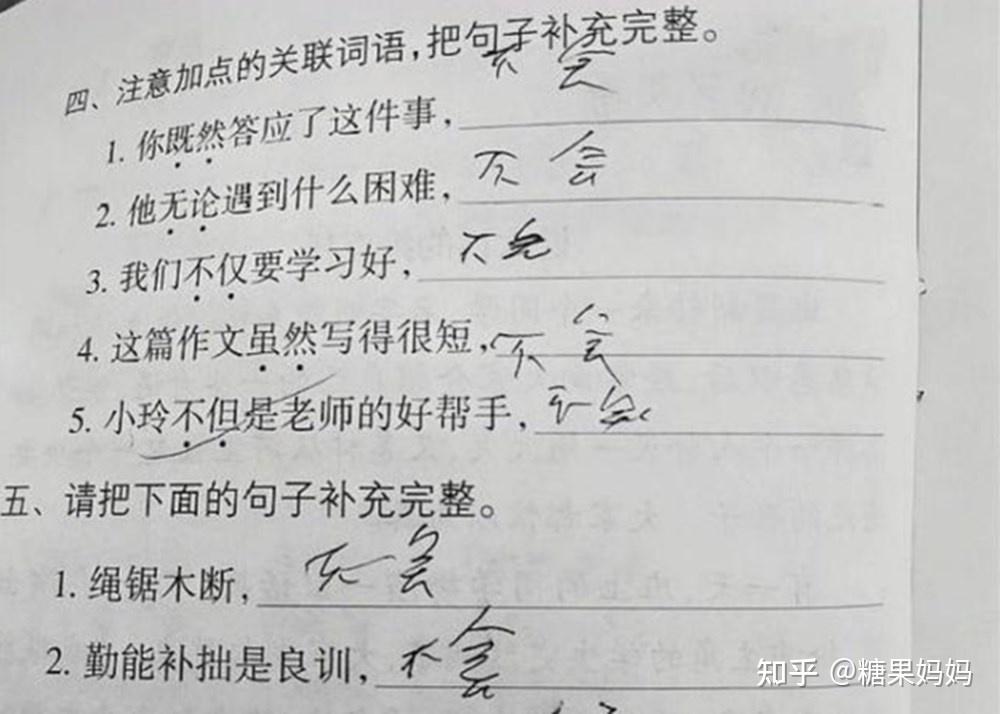 四、注意加点的关联词语,把句子补充完整。
1. 你既然答应了这件事, 不会
2. 他无论遇到什么困难, 不会
3. 我们不仅要学习好, 不会
4. 这篇作文虽然写得很短, 不会
5. 小玲不但是老师的好帮手, 不会
五、请把下面的句子补充完整。
1. 绳锯木断, 不会
2. 勤能补拙是良训, 不会
知乎 @糖果妈妈